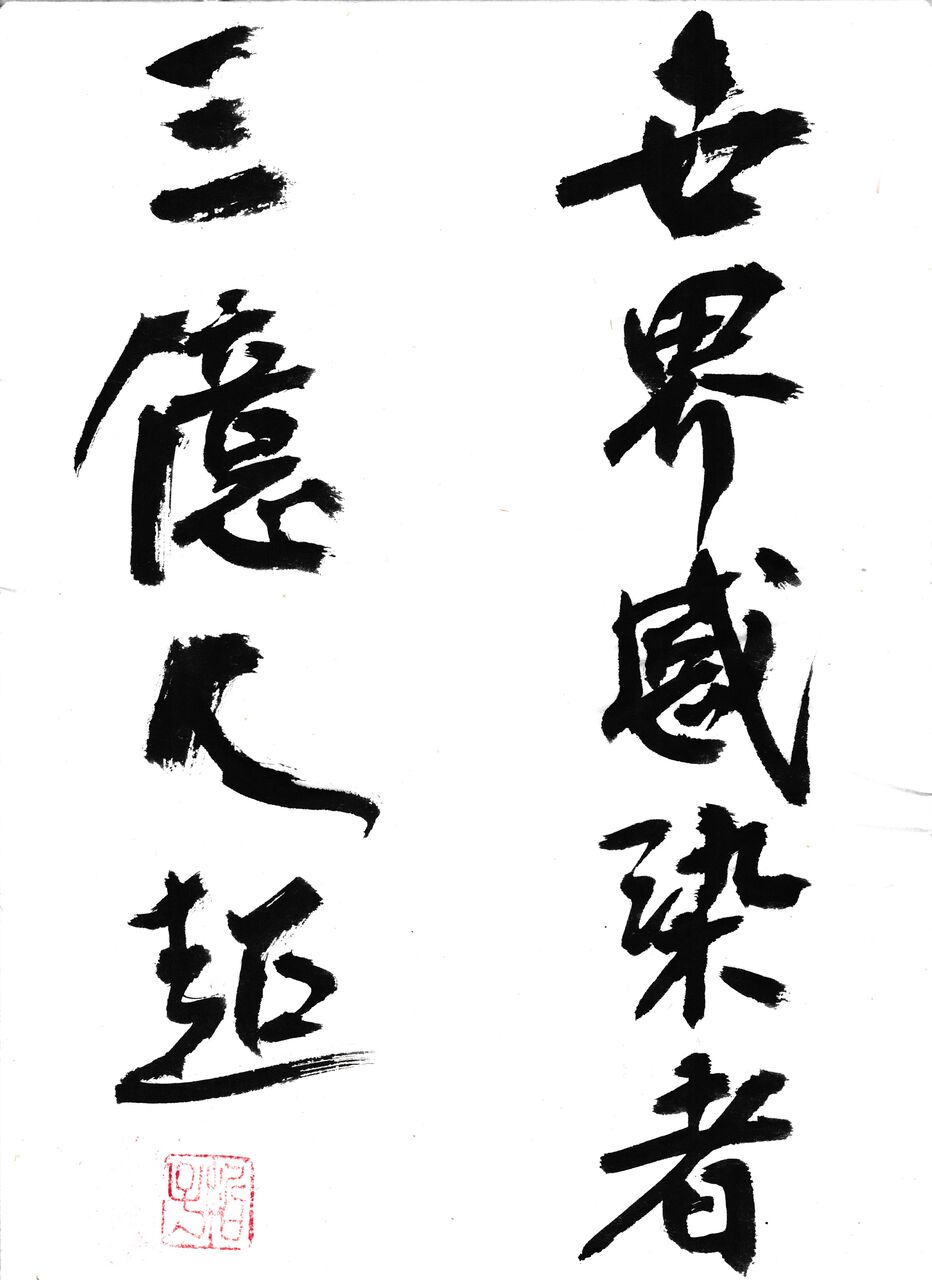 世界感染者
三億人超